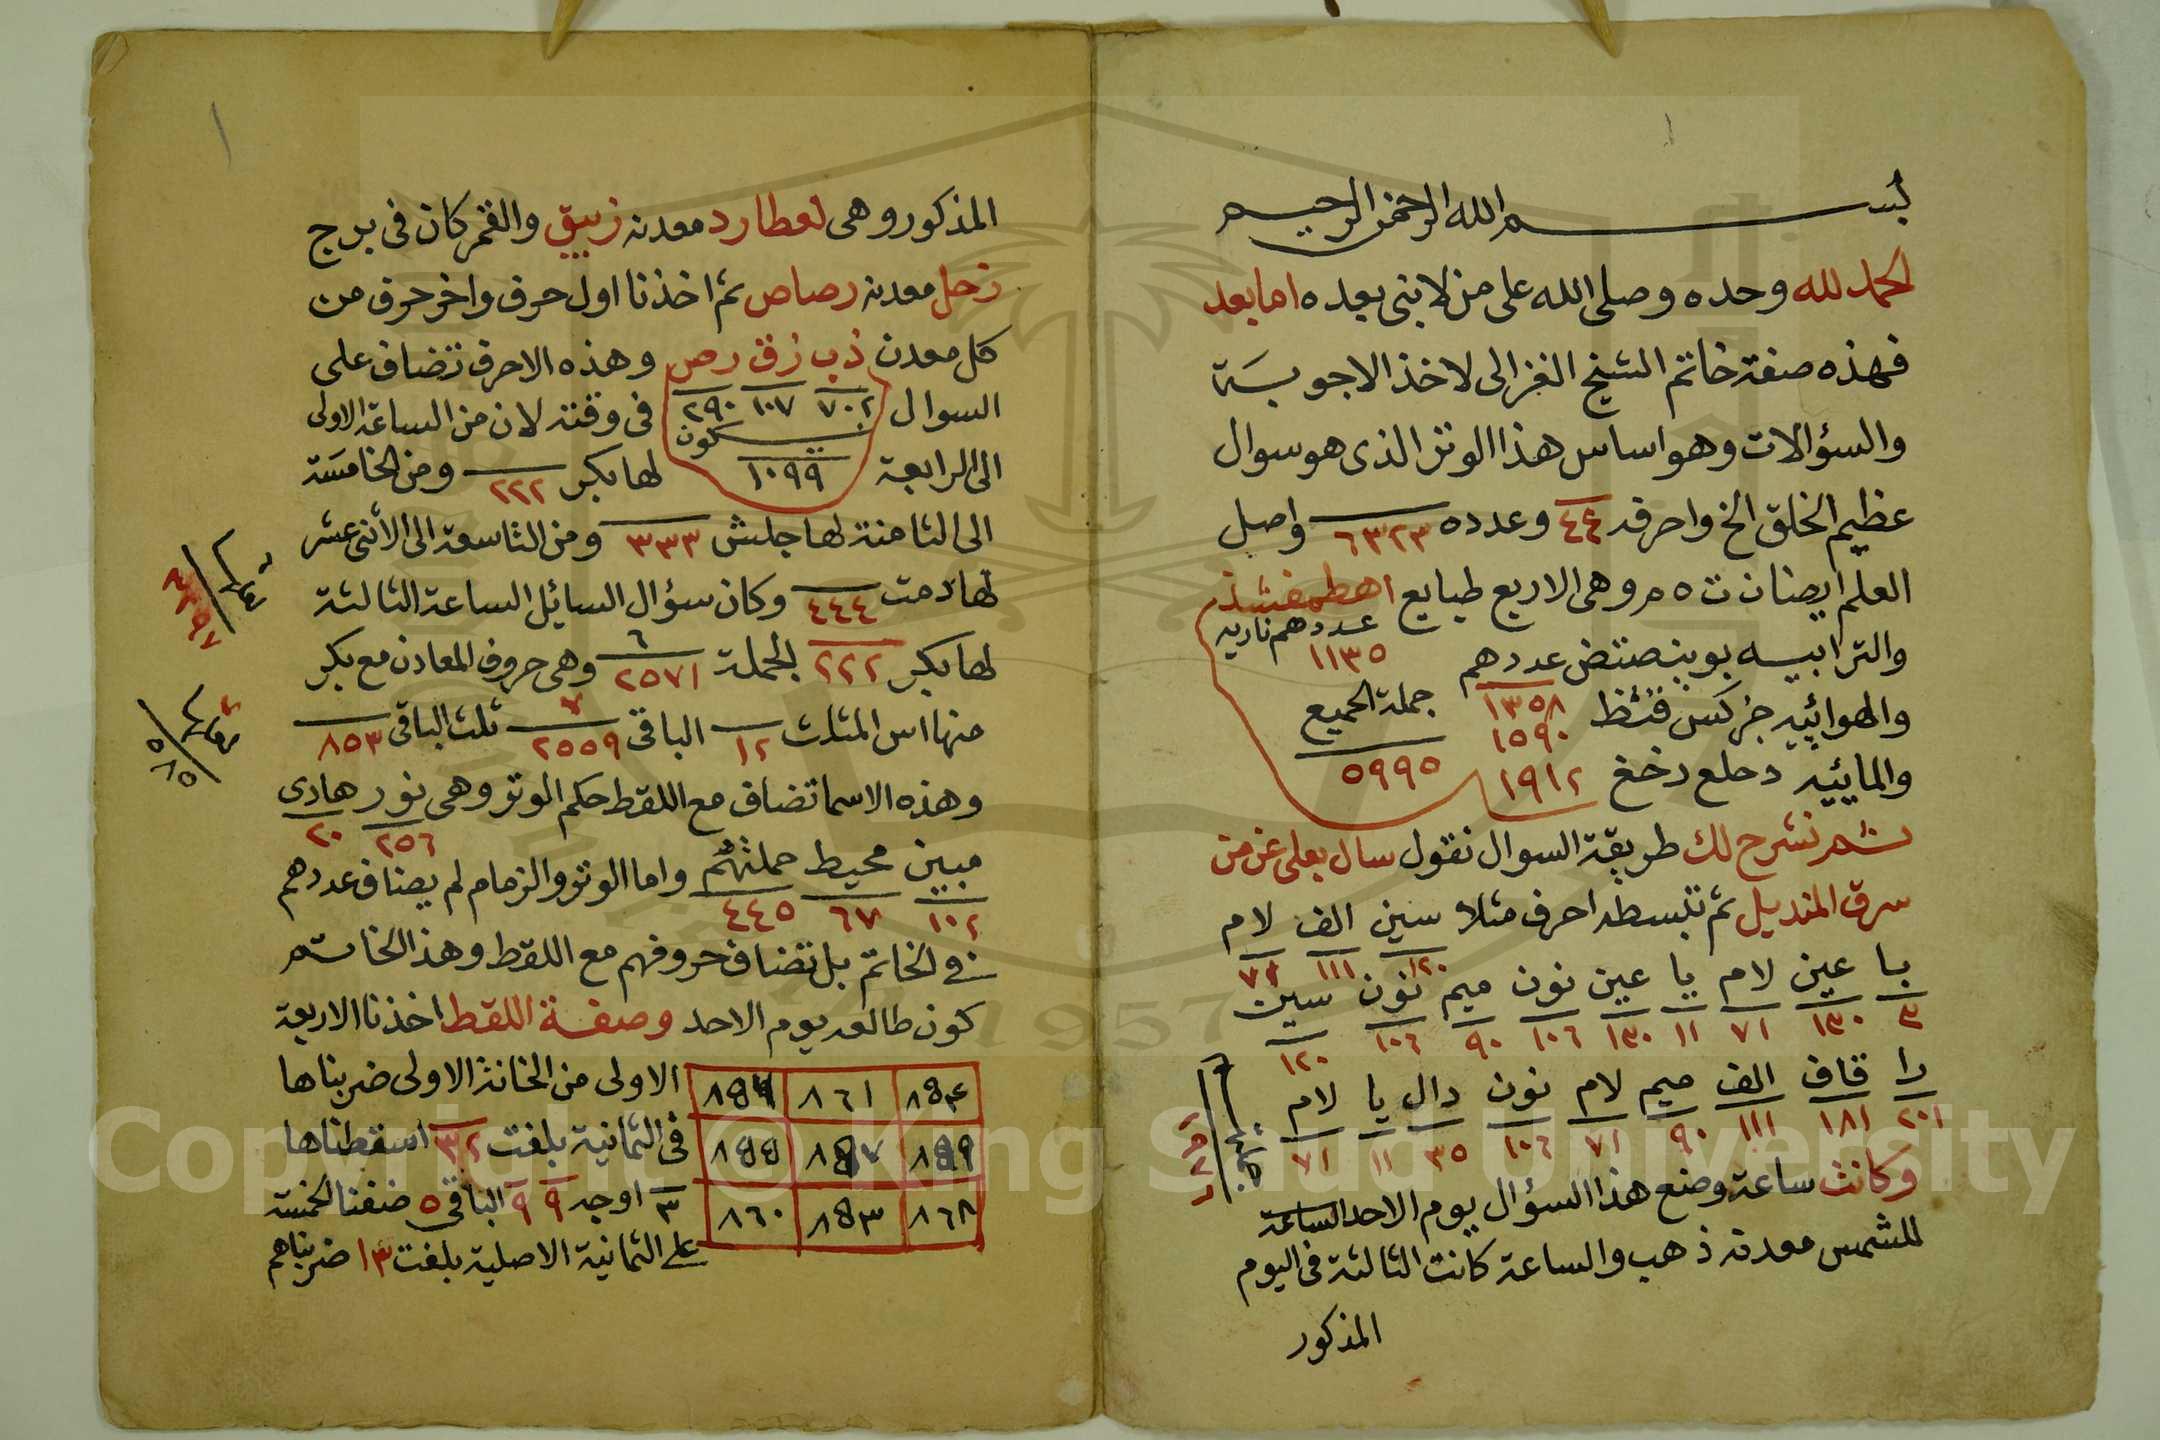 بسم الله الرحمن الرحيم
الحمد لله وحده وصلى الله على من لا نبى بعده اما بعد
فهذه صفة خاتم الشيخ الغزالى لاخذ الاجوبة
والسؤالات وهو اساس هذا الوتر الذى هو سوال
عظيم الخلق الخ واحرفه ٤٤ وعدده ٦٣٢٣ واصل
العلم ايضا ن ت ه م وهى الاربع طبايع اهطمفشذ
عددهم ناريه
١١٣٥
والترابيه بوينصتض عددهم
١٣٥٨
والهوائيه جزكس قثظ ١٥٩٠ جملة الجميع
٥٩٩٥
والمائيه دحلع رخغ ١٩١٢
ثم نشرح لك طريقة السوال نقول سال يعلى عن من
سرق المنديل ثم تبسطه احرف مثلا سين الف لام
١٢٠ ١١١ ٧١
با عين لام يا عين نون ميم نون سين
٣ ١٣٠ ٧١ ١١ ١٣٠ ١٠٦ ٩٠ ١٠٦ ١٢٠
را قاف الف ميم لام نون دال يا لام
٢٠١ ١٨١ ١١١ ٩٠ ٧١ ١٠٦ ٣٥ ١١ ٧١
وكانت ساعة وضع هذا السؤال يوم الاحد الساعة
للشمس معدنه ذهب والساعة كانت الثالثة فى اليوم
المذكور
المذكور وهى لعطارد معدنه زيبق والقمر كان فى برج
زحل معدنه رصاص ثم اخذنا اول حرف واخر حرف من
كل معدن ذب زق رص وهذه الاحرف تضاف على
٧٠٢ ١٠٧ ٢٩٠
السوال فى وقته لان من الساعة الاولى
يكون
١٠٩٩
الى الرابعة لها بكر ٢٢٢ ومن الخامسة
الى الثامنة لها جلش ٣٣٣ ومن التاسعة الى الأثنى عشر
لها دمت ٤٤٤ وكان سؤال السائل الساعة الثالثة
لها بكر ٢٢٢ الجملة ٢٥٧١ وهى حروف المعادن مع بكر
منها اس المثلث ١٢ الباقى ٢٥٥٩ ثلث الباقى ٨٥٣
وهذه الاسما تضاف مع اللقط حكم الوتر وهى نور هادى
٢٥٦ ٢٠
مبين محيط جملتهم واما الوتر والزمام لم يضاف عددهم
١٠٢ ٦٧ ٤٤٥
فى الخاتم بل تضاف حروفهم مع اللقط وهذ الخاتم
كون طالعه يوم الاحد وصفة اللقط اخذنا الاربعة
الاولى من الخانة الاولى ضربناها
فى الثمانية بلغت ٣٢ اسقطناها
٣ اوجه ٩ ٩ ٩ الباقى ٥ ضفنا الخمسة
على الثمانية الاصلية بلغت ١٣ ضربناهم
٨٦١
٨٦٨ ٨٥٣ ٨٦٠